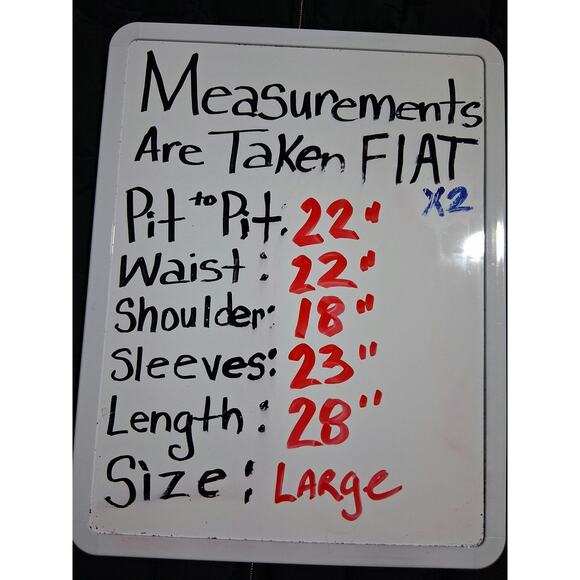 Measurements
Are Taken FlAT
X2
Pit to Pit: 22"
Waist: 22"
Shoulder: 18"
Sleeves: 23"
Length: 28"
Size: LARge